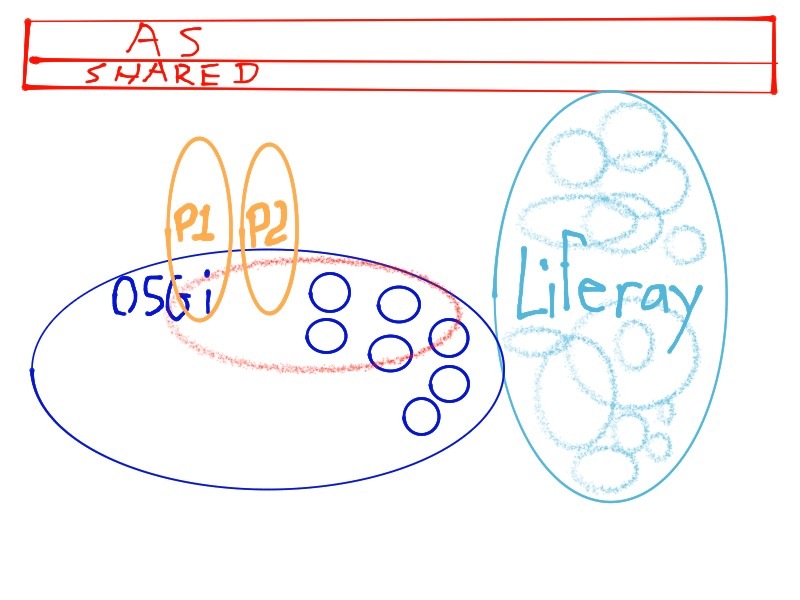 AS
SHARED
P1 P2
OSGi
Liferay